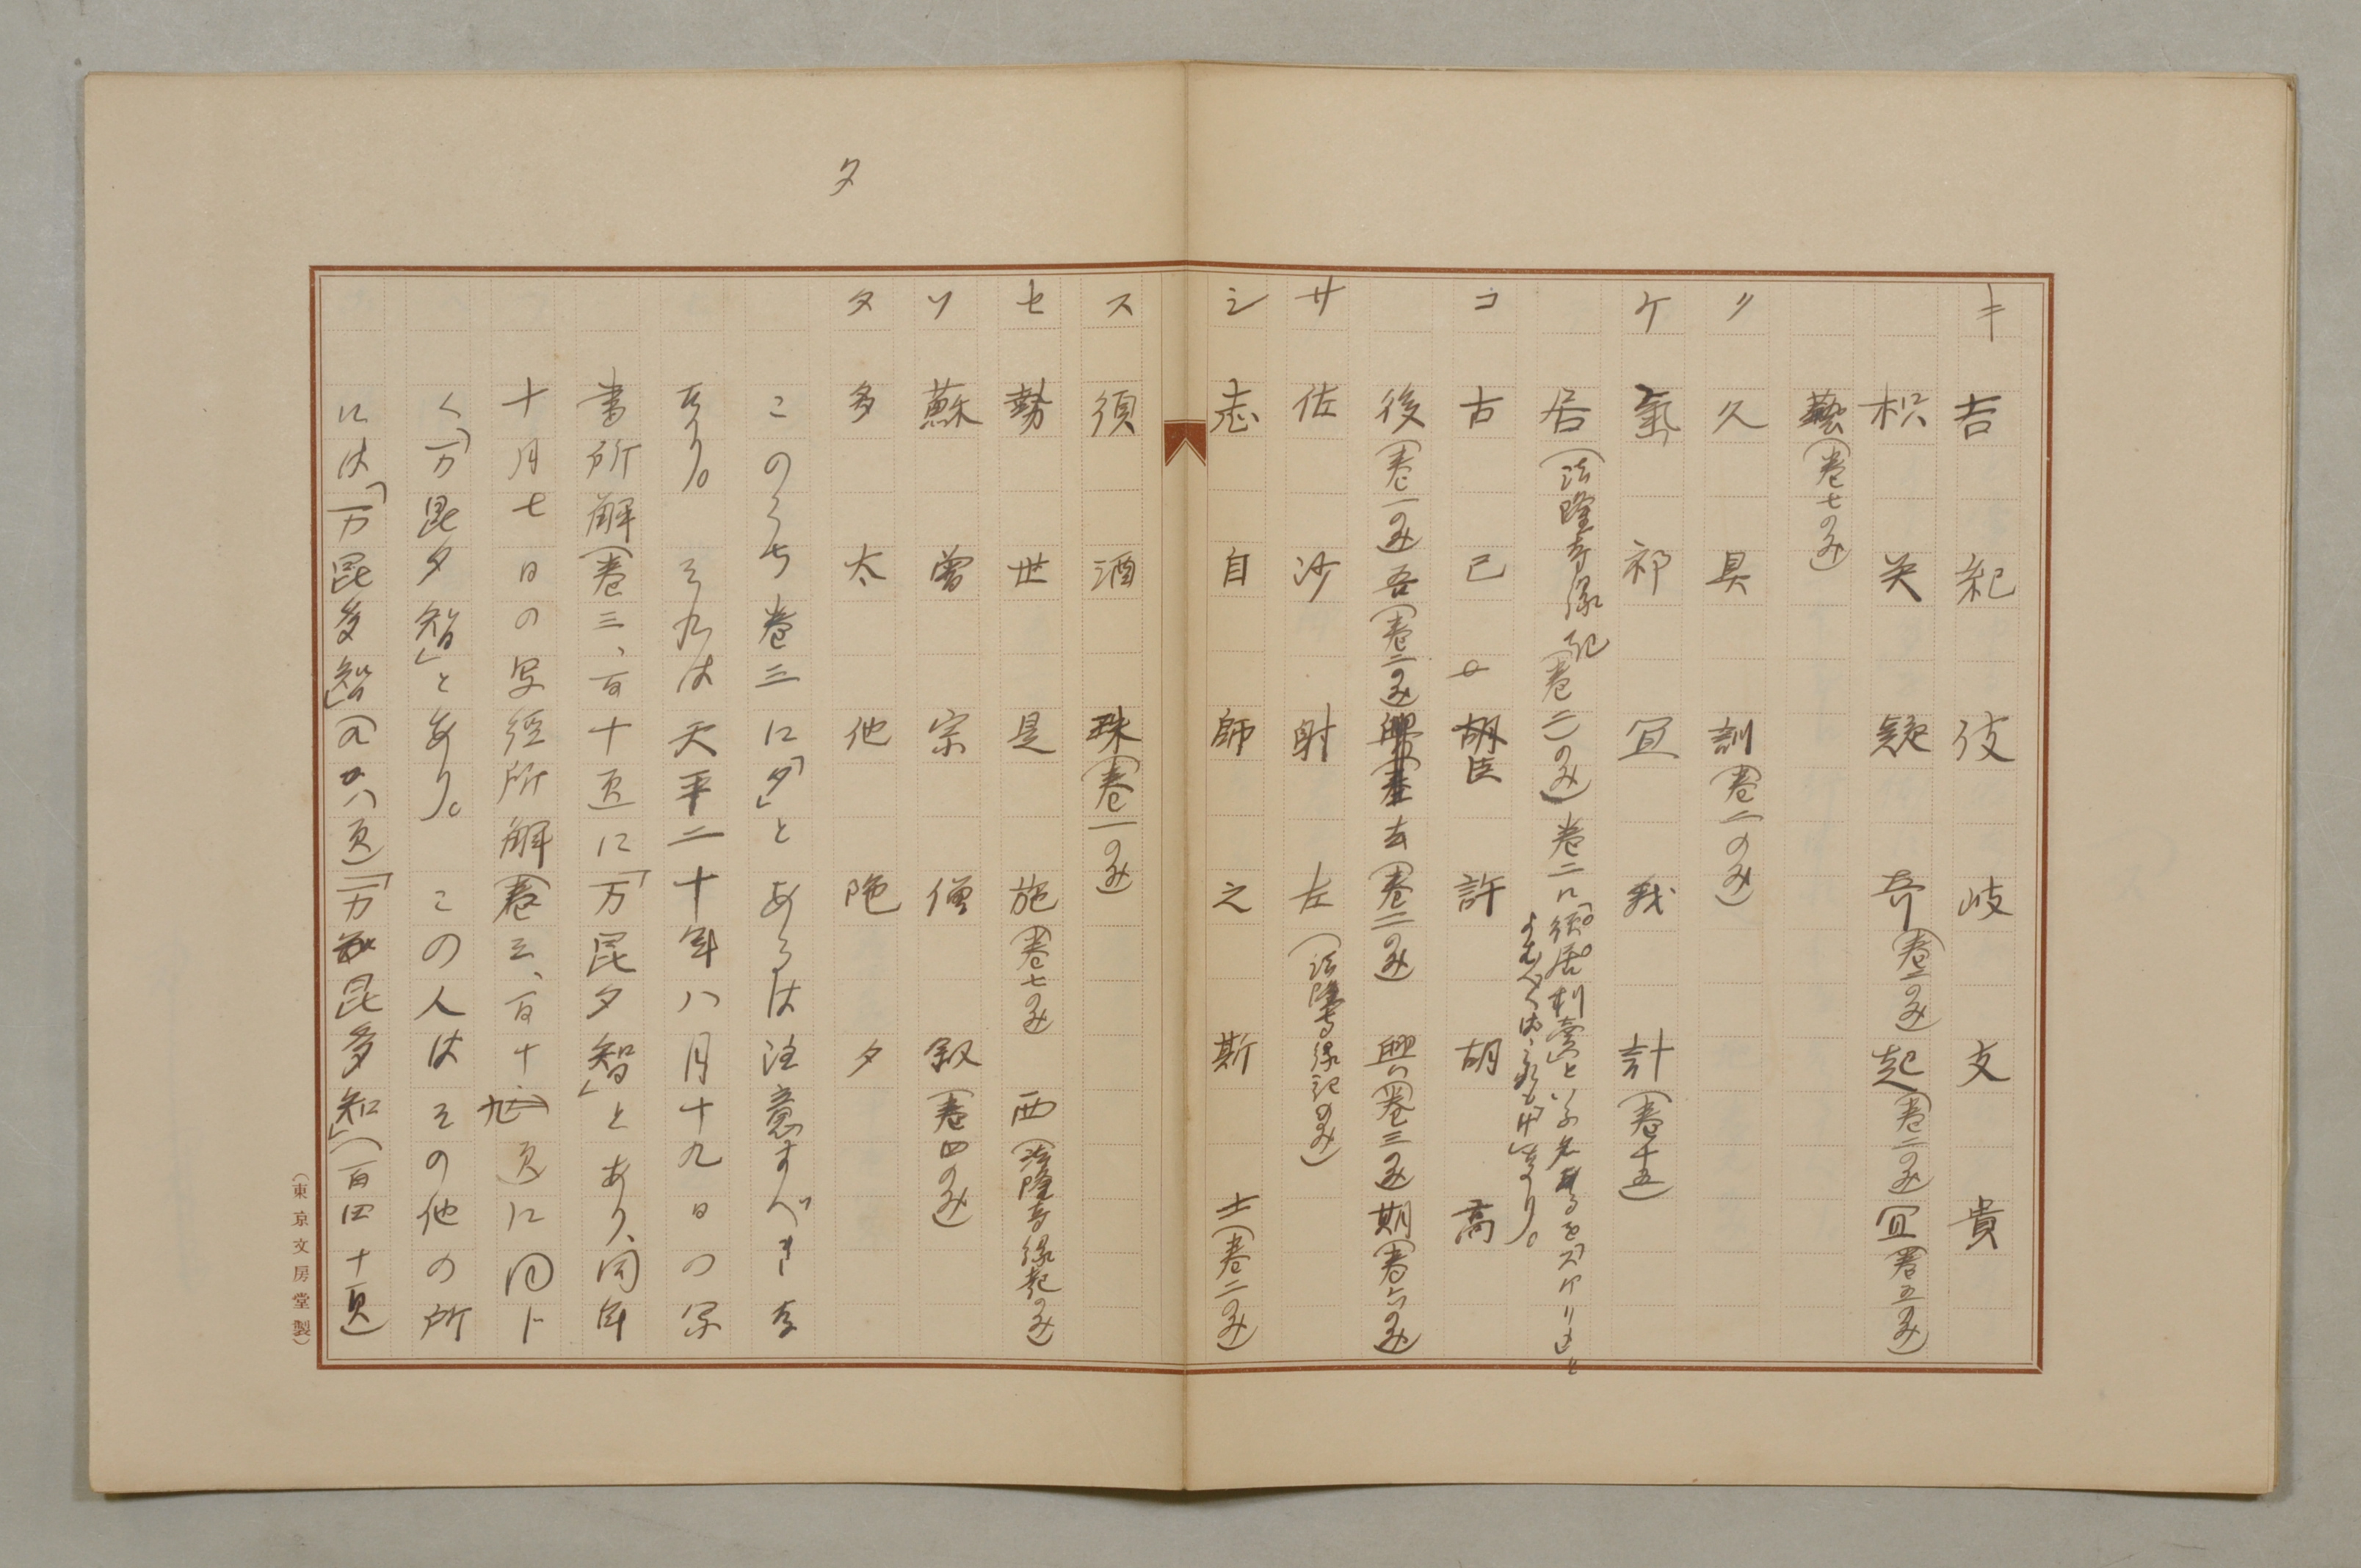 キ 吉 紀 伎 岐 支 貴
枳 疑 奇(巻二のみ)起(巻二のみ)宜(巻五のみ)
藝(巻七のみ)
ク 久 具 訓(巻一のみ)
ケ 氣 祁 宜 我 計(巻十五)
居(法隆寺縁記(巻二)のみ)巻二に
コ 古 己 許 胡 高
後(巻一のみ)吾(巻二のみ)去(巻二のみ) 興(巻三のみ)期(巻六のみ)
サ 佐 沙 射 左(法隆寺縁記のみ)
シ 志 自 師 之 斯 士(巻二のみ)
ス 須 酒 珠(巻一のみ)
セ 勢 世 是 施(巻七のみ) 西(法隆寺縁起のみ)
ソ 蘇 曽 宗 僧 叙(巻四のみ)
タ
タ 多 太 他 陁 タ
このうち巻三に「タ」とあるは注意すべきな
なり。 それは天平二十年八月十九日の写
書所解(巻三、百十頁に「万昆タ智」とあり、同年
十月七日の写経所解(巻三、百十頁に同じ
く「万昆タ智」とあり。 この人はその他の所
には「万昆多智」「万昆多知」(百四十頁)
(東京文房堂製)